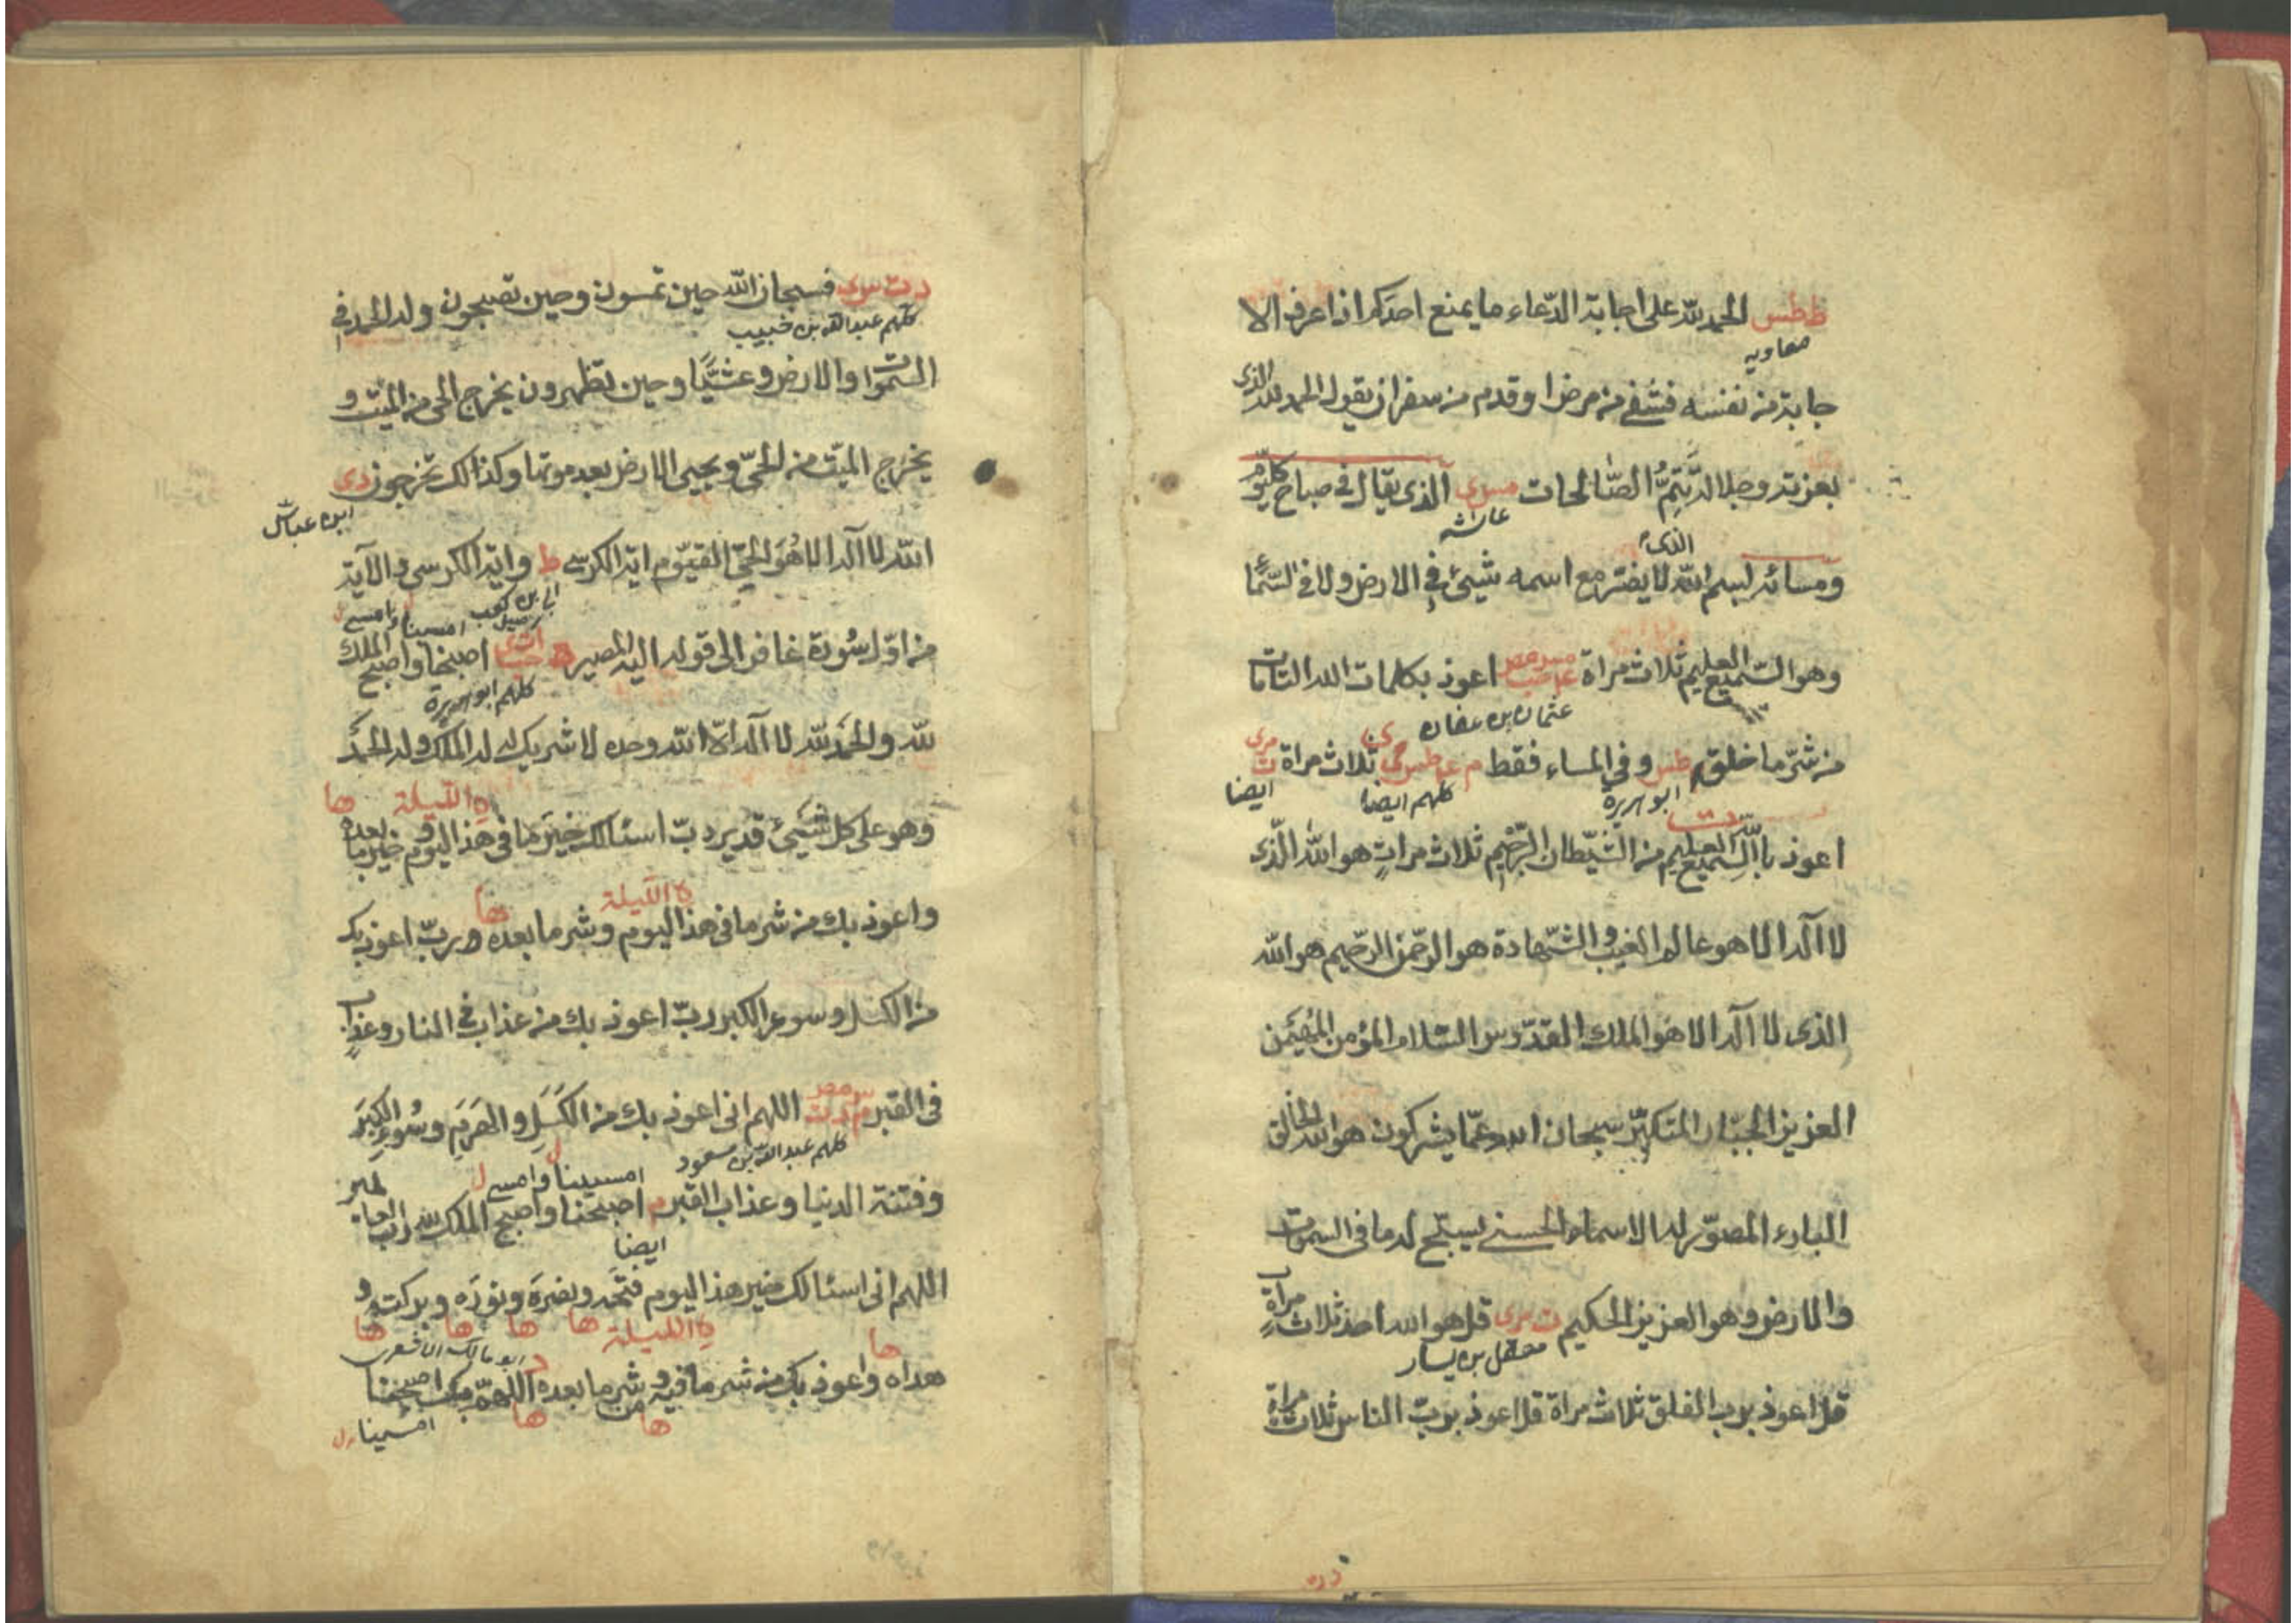 ططس الحمد لله على اجابة الدّعاء ما يمنع احدكم اذا عرف الا
معاويه
جابة من نفسه فشفى من مرض او قدم من سفر ان يقول الحمد لله الذى
بعزته وجلاله تتمُّ الصّالحات مس ى الذى يقال فى صباح كل يوم
عائشه
ومسائه بسم الله الذى لا يضر مع اسمه شيئ فى الارض ولا فى السّما
وهو السّميع العليم ثلاث مراة اعوذ بكلمات الله التامات
عثمان بن عفان
من شرّ ما خلق طس وفى المساء فقط م عه طس ى ثلاث مراة ت مى
ابو هريرة
كلهم ايضا
ايضا
اعوذ بالله السّميع العليم من الشّيطان الرّجيم ثلاث مراتٍ هو الله الّذى
لا آله الا هو عالم الغيب والشّهادة هو الرّحمن الرّحيم هو الله
الذى لا آله الا هو الملك القدّوس السّلام المؤمن المهيمن
العزيز الجبّار المتكبّر سبحان الله عمّا يشركون هو الله الخالق
البارء المصوّر له الاسماء الحسنى يسبّح له ما فى السموت
والارض وهو العزيز الحكيم ت مى قل هو الله احد ثلاث مراةٍ
معقل بن يسار
قل اعوذ برب الفلق ثلاث مراة قل اعوذ بربّ الناس ثلاث مراة
د ت س ى فسبحان الله حين تمسون وحين تصبحون وله الحمد فى
كلهم عبد الله بن خبيب
السّموات والارض وعشيًّا وحين تظهرون يخرج الحى من الميّت و
يخرج الميّت من الحىّ ويحيى الارض بعد موتها وكذالك تخرجون د ى
ابن عباس
الله لا آله الا هو الحىّ القيّوم اية الكرسى ط واية الكرسى والآية
ابى بن كعب
امسينا وامسى ل
من اوّل سُورة غافر الى قوله اليه المصير اصبحنا واصبح الملك
كلهم ابو هريرة
لله والحمد لله لا آله الّا الله وحده لا شريك له له الملك وله الحمدُ
ه الليلة ها
وهو على كل شيئ قدير ربّ اسئالك خيرَ ما فى هذا اليوم وخير ما بعده
ه الليلة ها
واعوذ بك من شر ما فى هذا اليوم وشر ما بعده ربّ اعوذ بك
من الكسل وسوء الكبر ربّ اعوذ بك من عذاب فى النار وعذابٍ
فى القبر م د ت س مص اللهم انى اعوذ بك من الكَسَلِ والهَرَمِ وسُوءِ الكِبَر
كلهم عبد الله بن مسعود
امسينا وامسى ل
وفتنة الدنيا وعذاب القبر م اصبحنا واصبح الملك لله ربّ العالمين
ايضا
اللهم انى اسئالك خير هذا اليوم فتحَه ونصرَه ونورَه وبركته و
ه الليلة ها ها ها ها
ابو مالك الاشعرى
ها
هداه واعوذ بك من شر ما فيه وشر ما بعده د اللهمّ بك اصبحنا
من ها ها امسينا ل